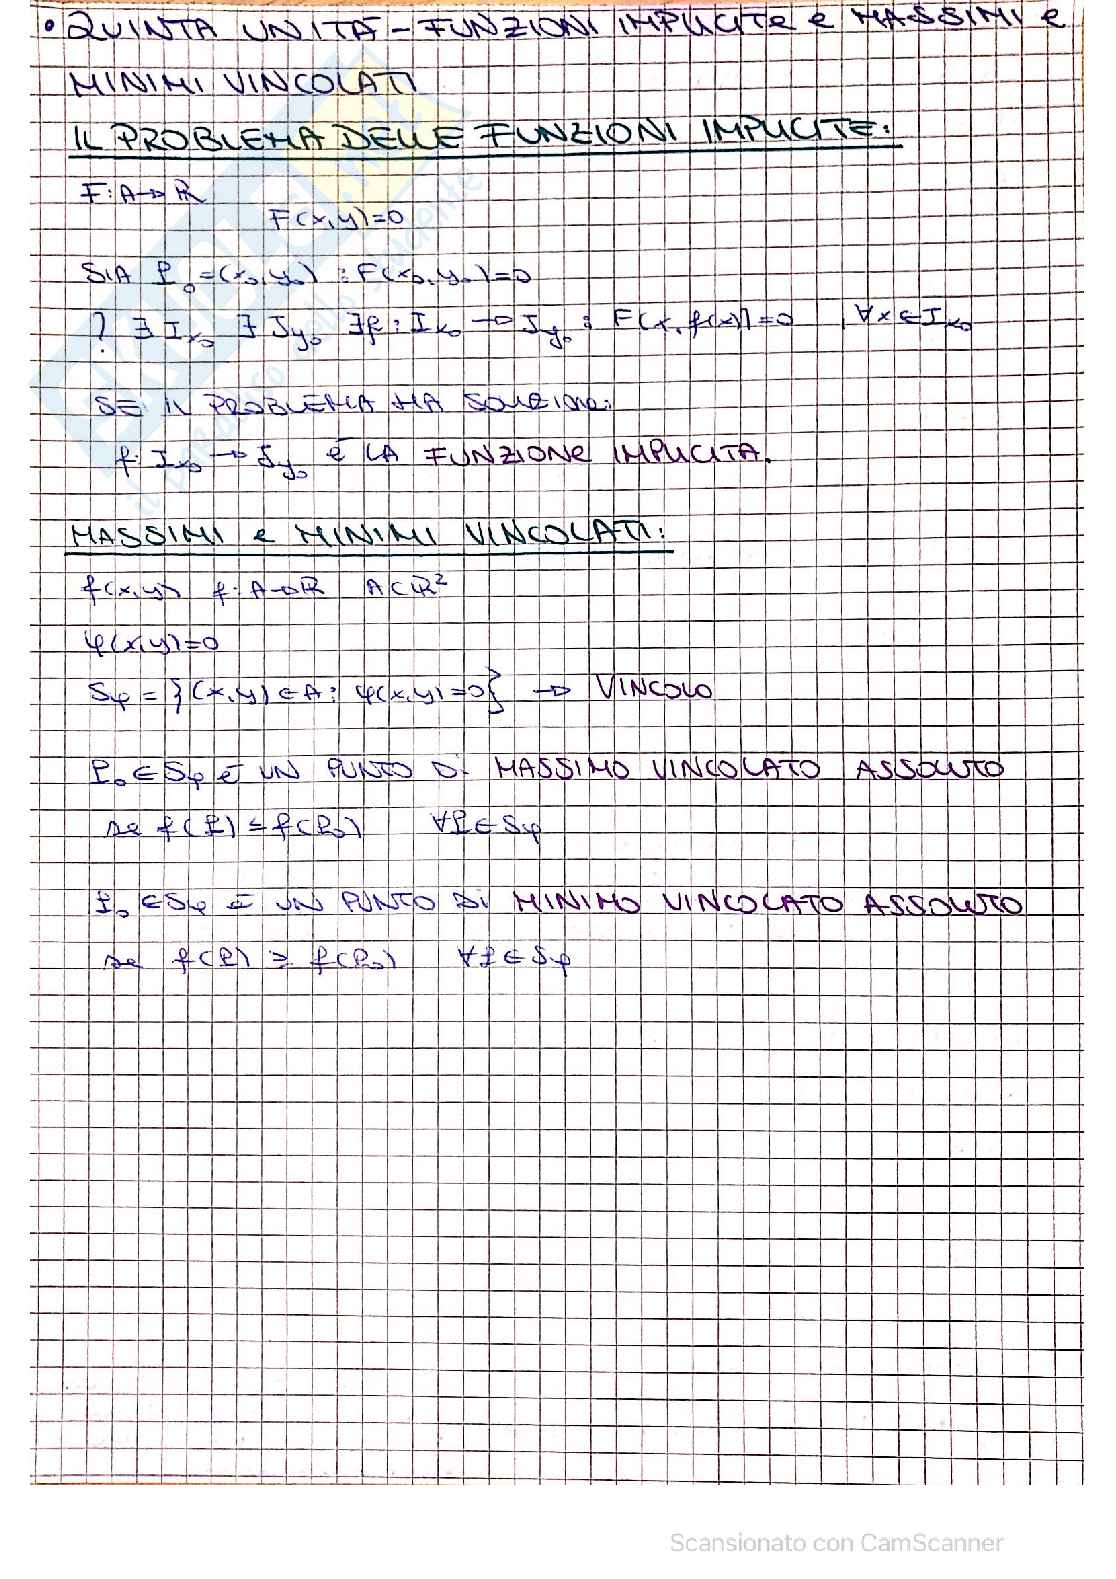 • QUINTA UNITÀ - FUNZIONI IMPLICITE e MASSIMI e
MINIMI VINCOLATI
IL PROBLEMA DELLE FUNZIONI IMPLICITE:
F: A → ℝ
F(x,y)=0
SIA P₀=(x₀,y₀) : F(x₀,y₀)=0
? ∃ Ix₀ ∃ Jy₀ ∃f: Ix₀ → Jy₀ : F(x, f(x))=0 , ∀x∈Ix₀
SE IL PROBLEMA HA SOLUZIONE:
f: Ix₀ → Jy₀ È LA FUNZIONE IMPLICITA.
MASSIMI e MINIMI VINCOLATI:
f(x,y) f: A→ℝ A⊂ℝ²
φ(x,y)=0
Sφ = {(x,y)∈A: φ(x,y)=0} → VINCOLO
P₀∈Sφ È UN PUNTO DI MASSIMO VINCOLATO ASSOLUTO
se f(P) ≤ f(P₀) ∀P∈Sφ
P₀∈Sφ È UN PUNTO DI MINIMO VINCOLATO ASSOLUTO
se f(P) ≥ f(P₀) ∀P∈Sφ
Scansionato con CamScanner